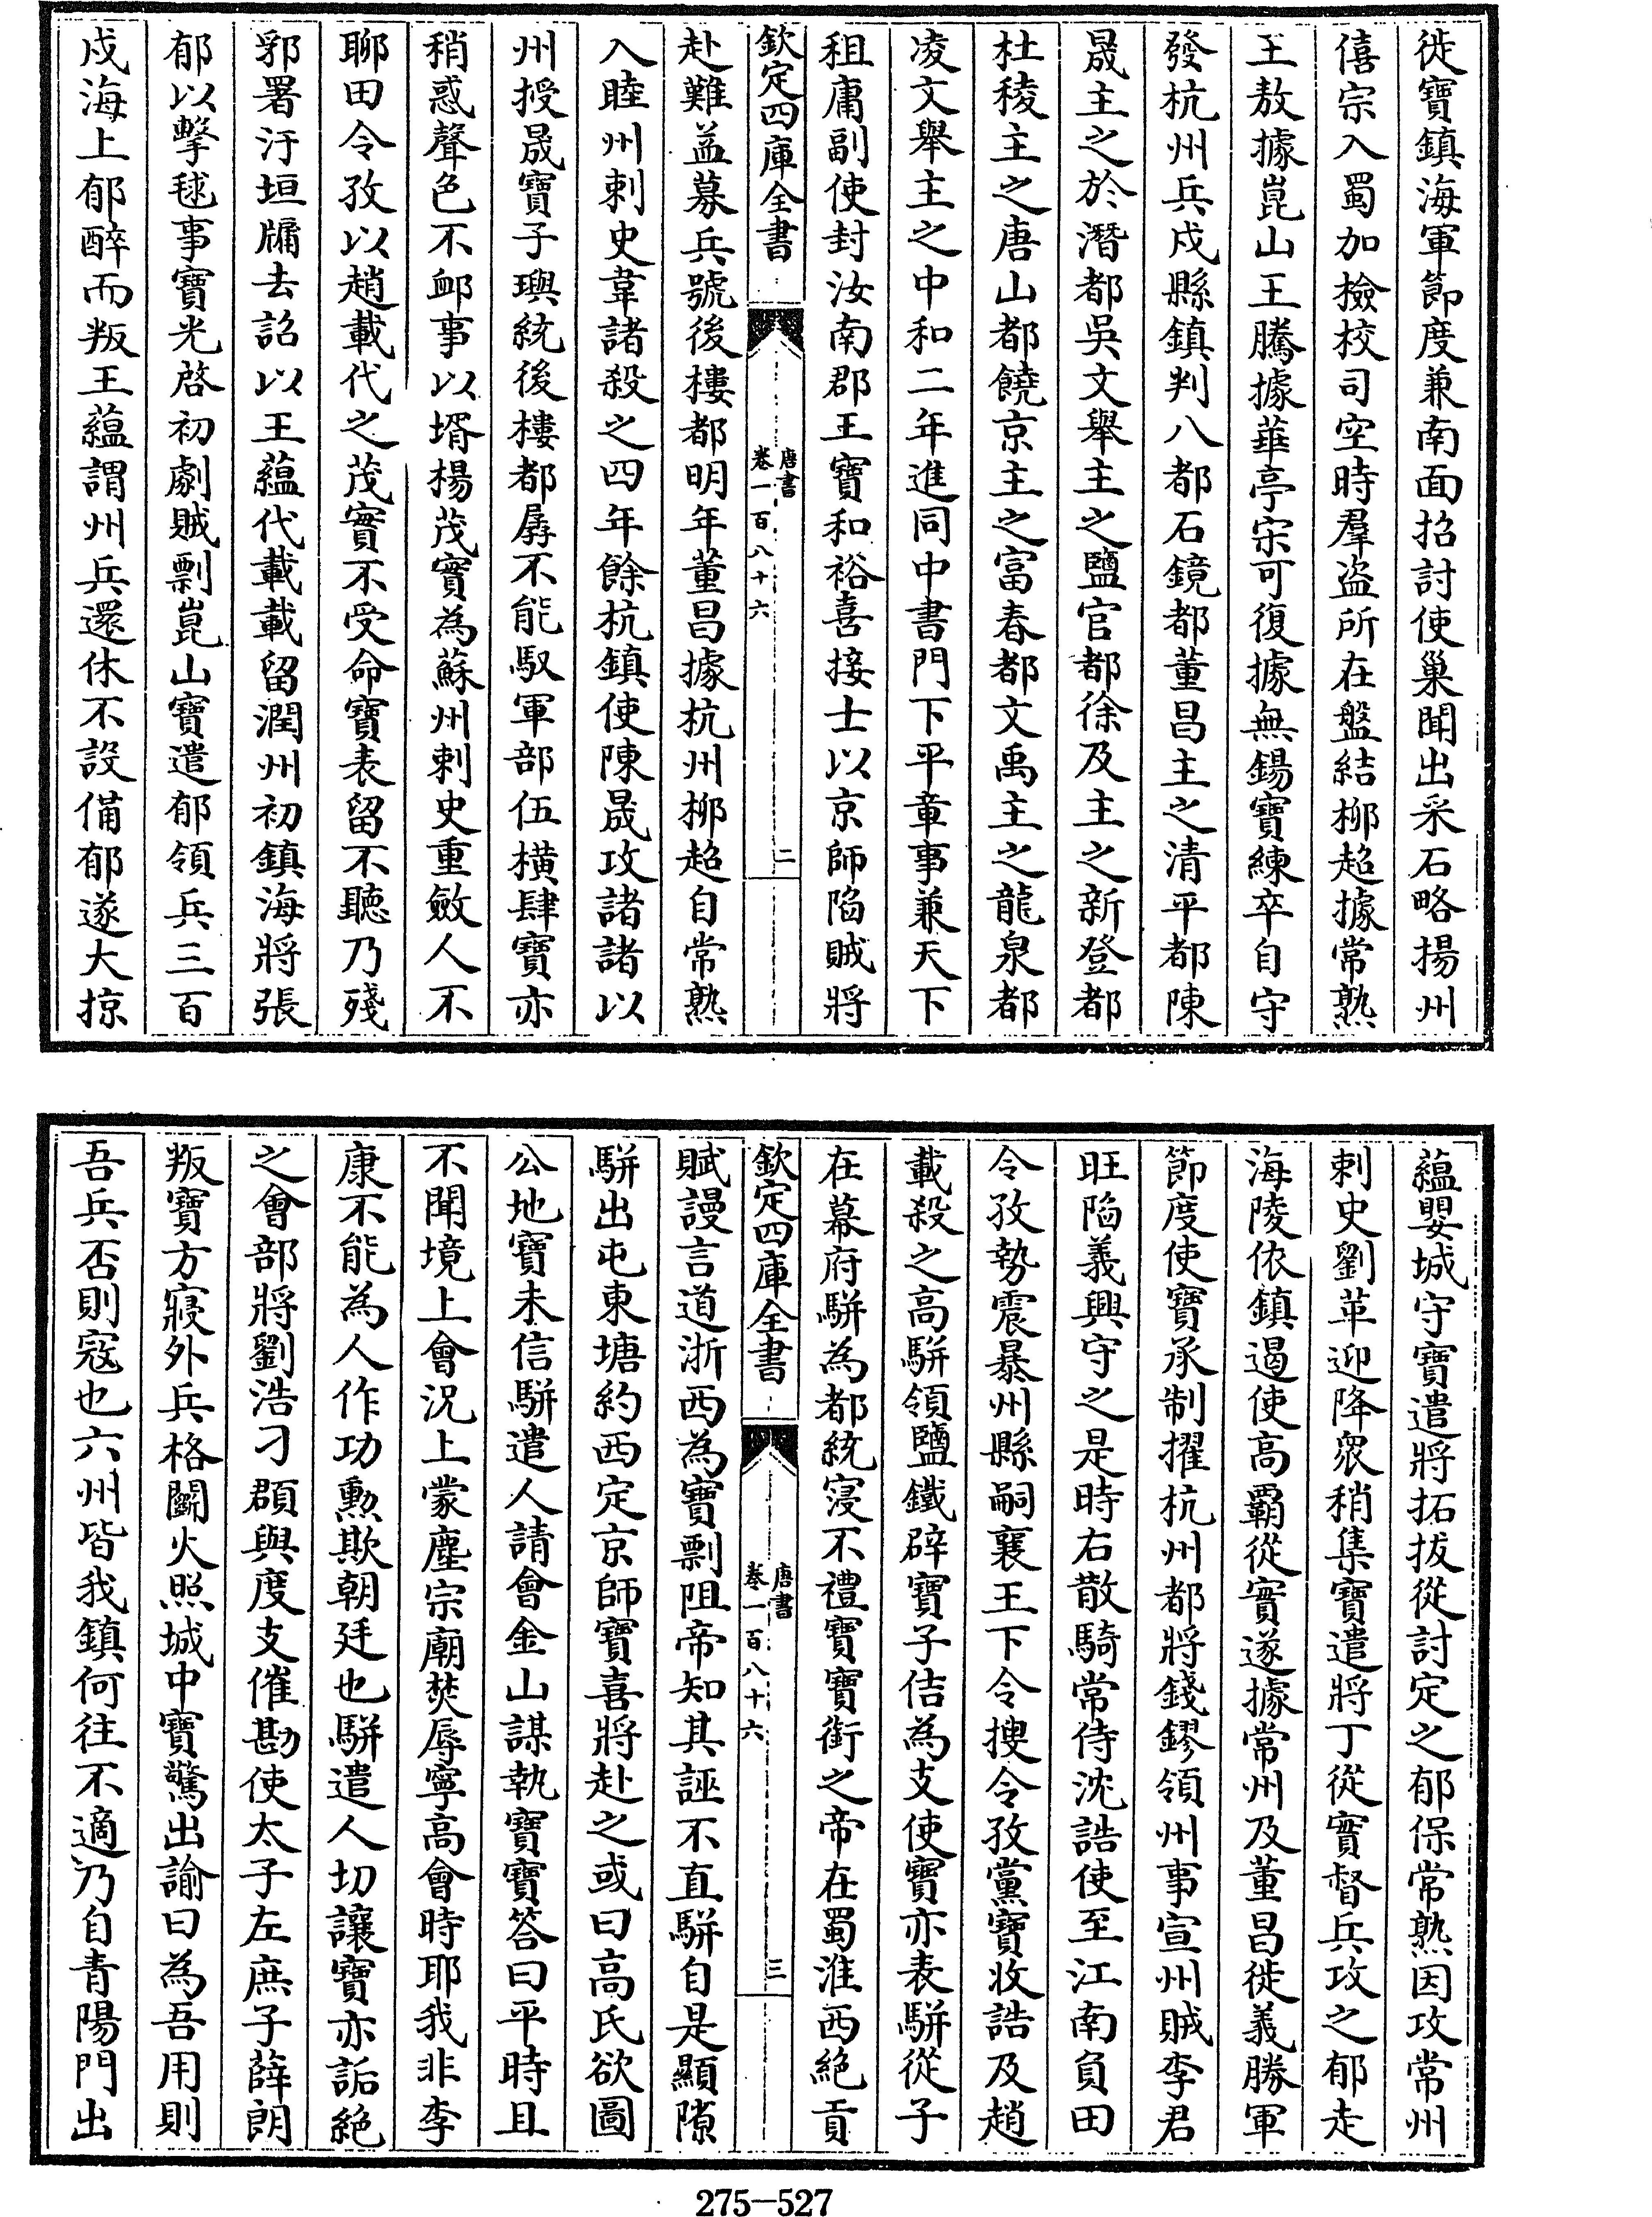 徙寶鎮海軍節度兼南面招討使巢聞出采石略揚州
僖宗入蜀加撿校司空時羣盗所在盤結柳超據常熟
王敖據崑山王騰據華亭宋可復據無錫寶練卒自守
發杭州兵戍縣鎮判八都石鏡都董昌主之清平都陳
晟主之於潛都吳文舉主之鹽官都徐及主之新登都
杜稜主之唐山都饒京主之富春都文禹主之龍泉都
凌文舉主之中和二年進同中書門下平章事兼天下
租庸副使封汝南郡王寶和裕喜接士以京師陷賊將
欽定四庫全書
唐書
卷一百八十六
二
赴難益募兵號後樓都明年董昌據杭州柳超自常熟
入睦州刺史韋諸殺之四年餘杭鎮使陳晟攻諸諸以
州授晟寶子璵統後樓都孱不能馭軍部伍橫肆寶亦
稍惑聲色不䘏事以壻楊茂實為蘇州刺史重斂人不
聊田令孜以趙載代之茂實不受命寶表留不聽乃殘
郛署汙垣牖去詔以王藴代載載留潤州初鎮海將張
郁以擊毬事寶光啓初劇賊剽崑山寶遣郁領兵三百
戍海上郁醉而叛王藴謂州兵還休不設備郁遂大掠
藴嬰城守寶遣將拓拔從討定之郁保常熟因攻常州
刺史劉革迎降衆稍集寶遣將丁從實督兵攻之郁走
海陵依鎮遏使高霸從實遂據常州及董昌徙義勝軍
節度使寶承制擢杭州都將錢鏐領州事宣州賊李君
旺陷義興守之是時右散騎常侍沈誥使至江南負田
令孜勢震暴州縣嗣襄王下令搜令孜黨寶收誥及趙
載殺之高駢領鹽鐵辟寶子佶為支使寶亦表駢從子
在幕府駢為都統寖不禮寶寶銜之帝在蜀淮西絕貢
欽定四庫全書
唐書
卷一百八十六
三
賦謾言道浙西為寶剽阻帝知其誣不直駢自是顯隙
駢出屯東塘約西定京師寶喜將赴之或曰高氏欲圖
公地寶未信駢遣人請會金山謀執寶寶答曰平時且
不聞境上會況上蒙塵宗廟焚辱寧高會時耶我非李
康不能為人作功勲欺朝廷也駢遣人切讓寶亦詬絕
之會部將劉浩刁頵與度支催勘使太子左庶子薛朗
叛寶方寢外兵格鬭火照城中寶驚出諭曰為吾用則
吾兵否則寇也六州皆我鎮何往不適乃自青陽門出
275—527